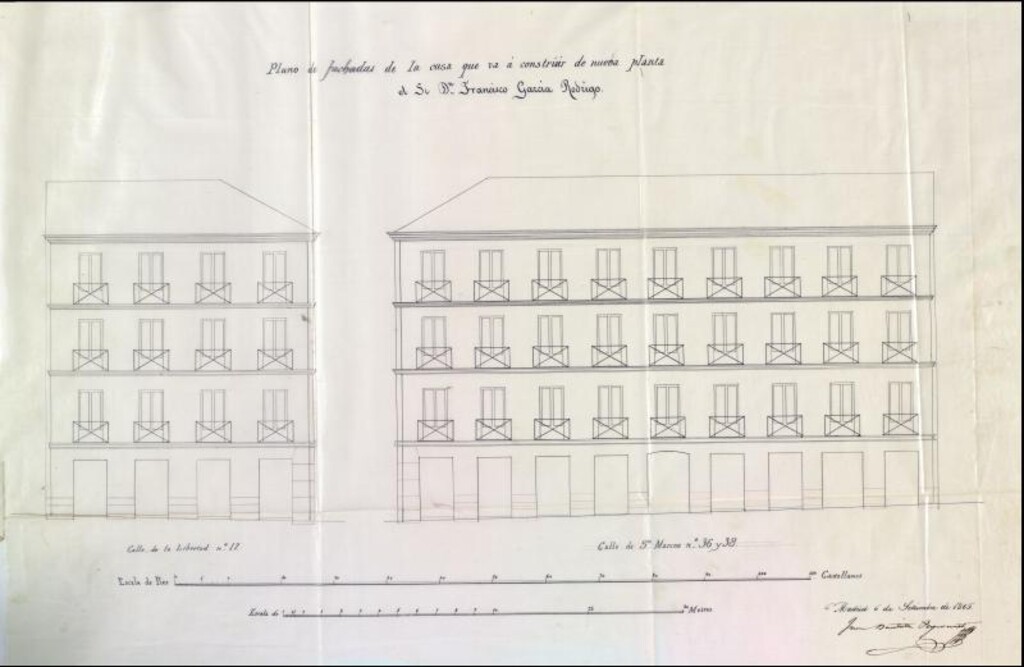 Plano de fachadas de la casa que va á construir de nueva planta
el Sr. Dn. Francisco García Rodrigo.
Calle de la Libertad n.º 17
Calle de Sn. Marcos n.os 36 y 38.
Escala de Pies
Castellanos
Escala de
Metros
Madrid 6 de Setiembre de 1865
Juan Bautista